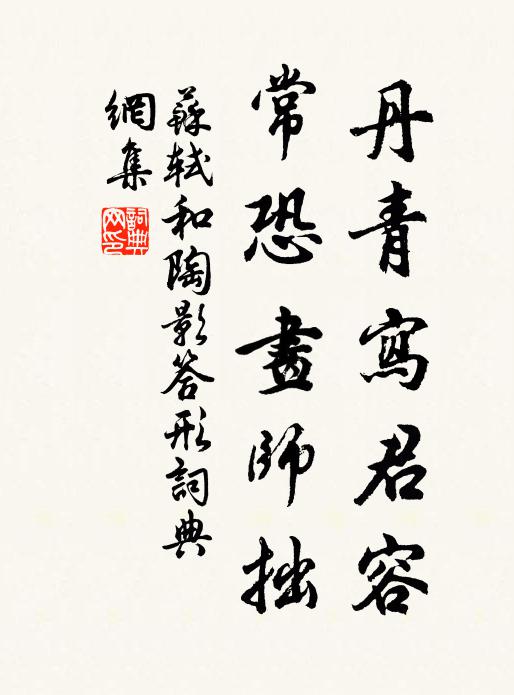 丹青寫君容
常恐畫師拙
蘇軾和陶影答形詞典
網集
詞典
网印